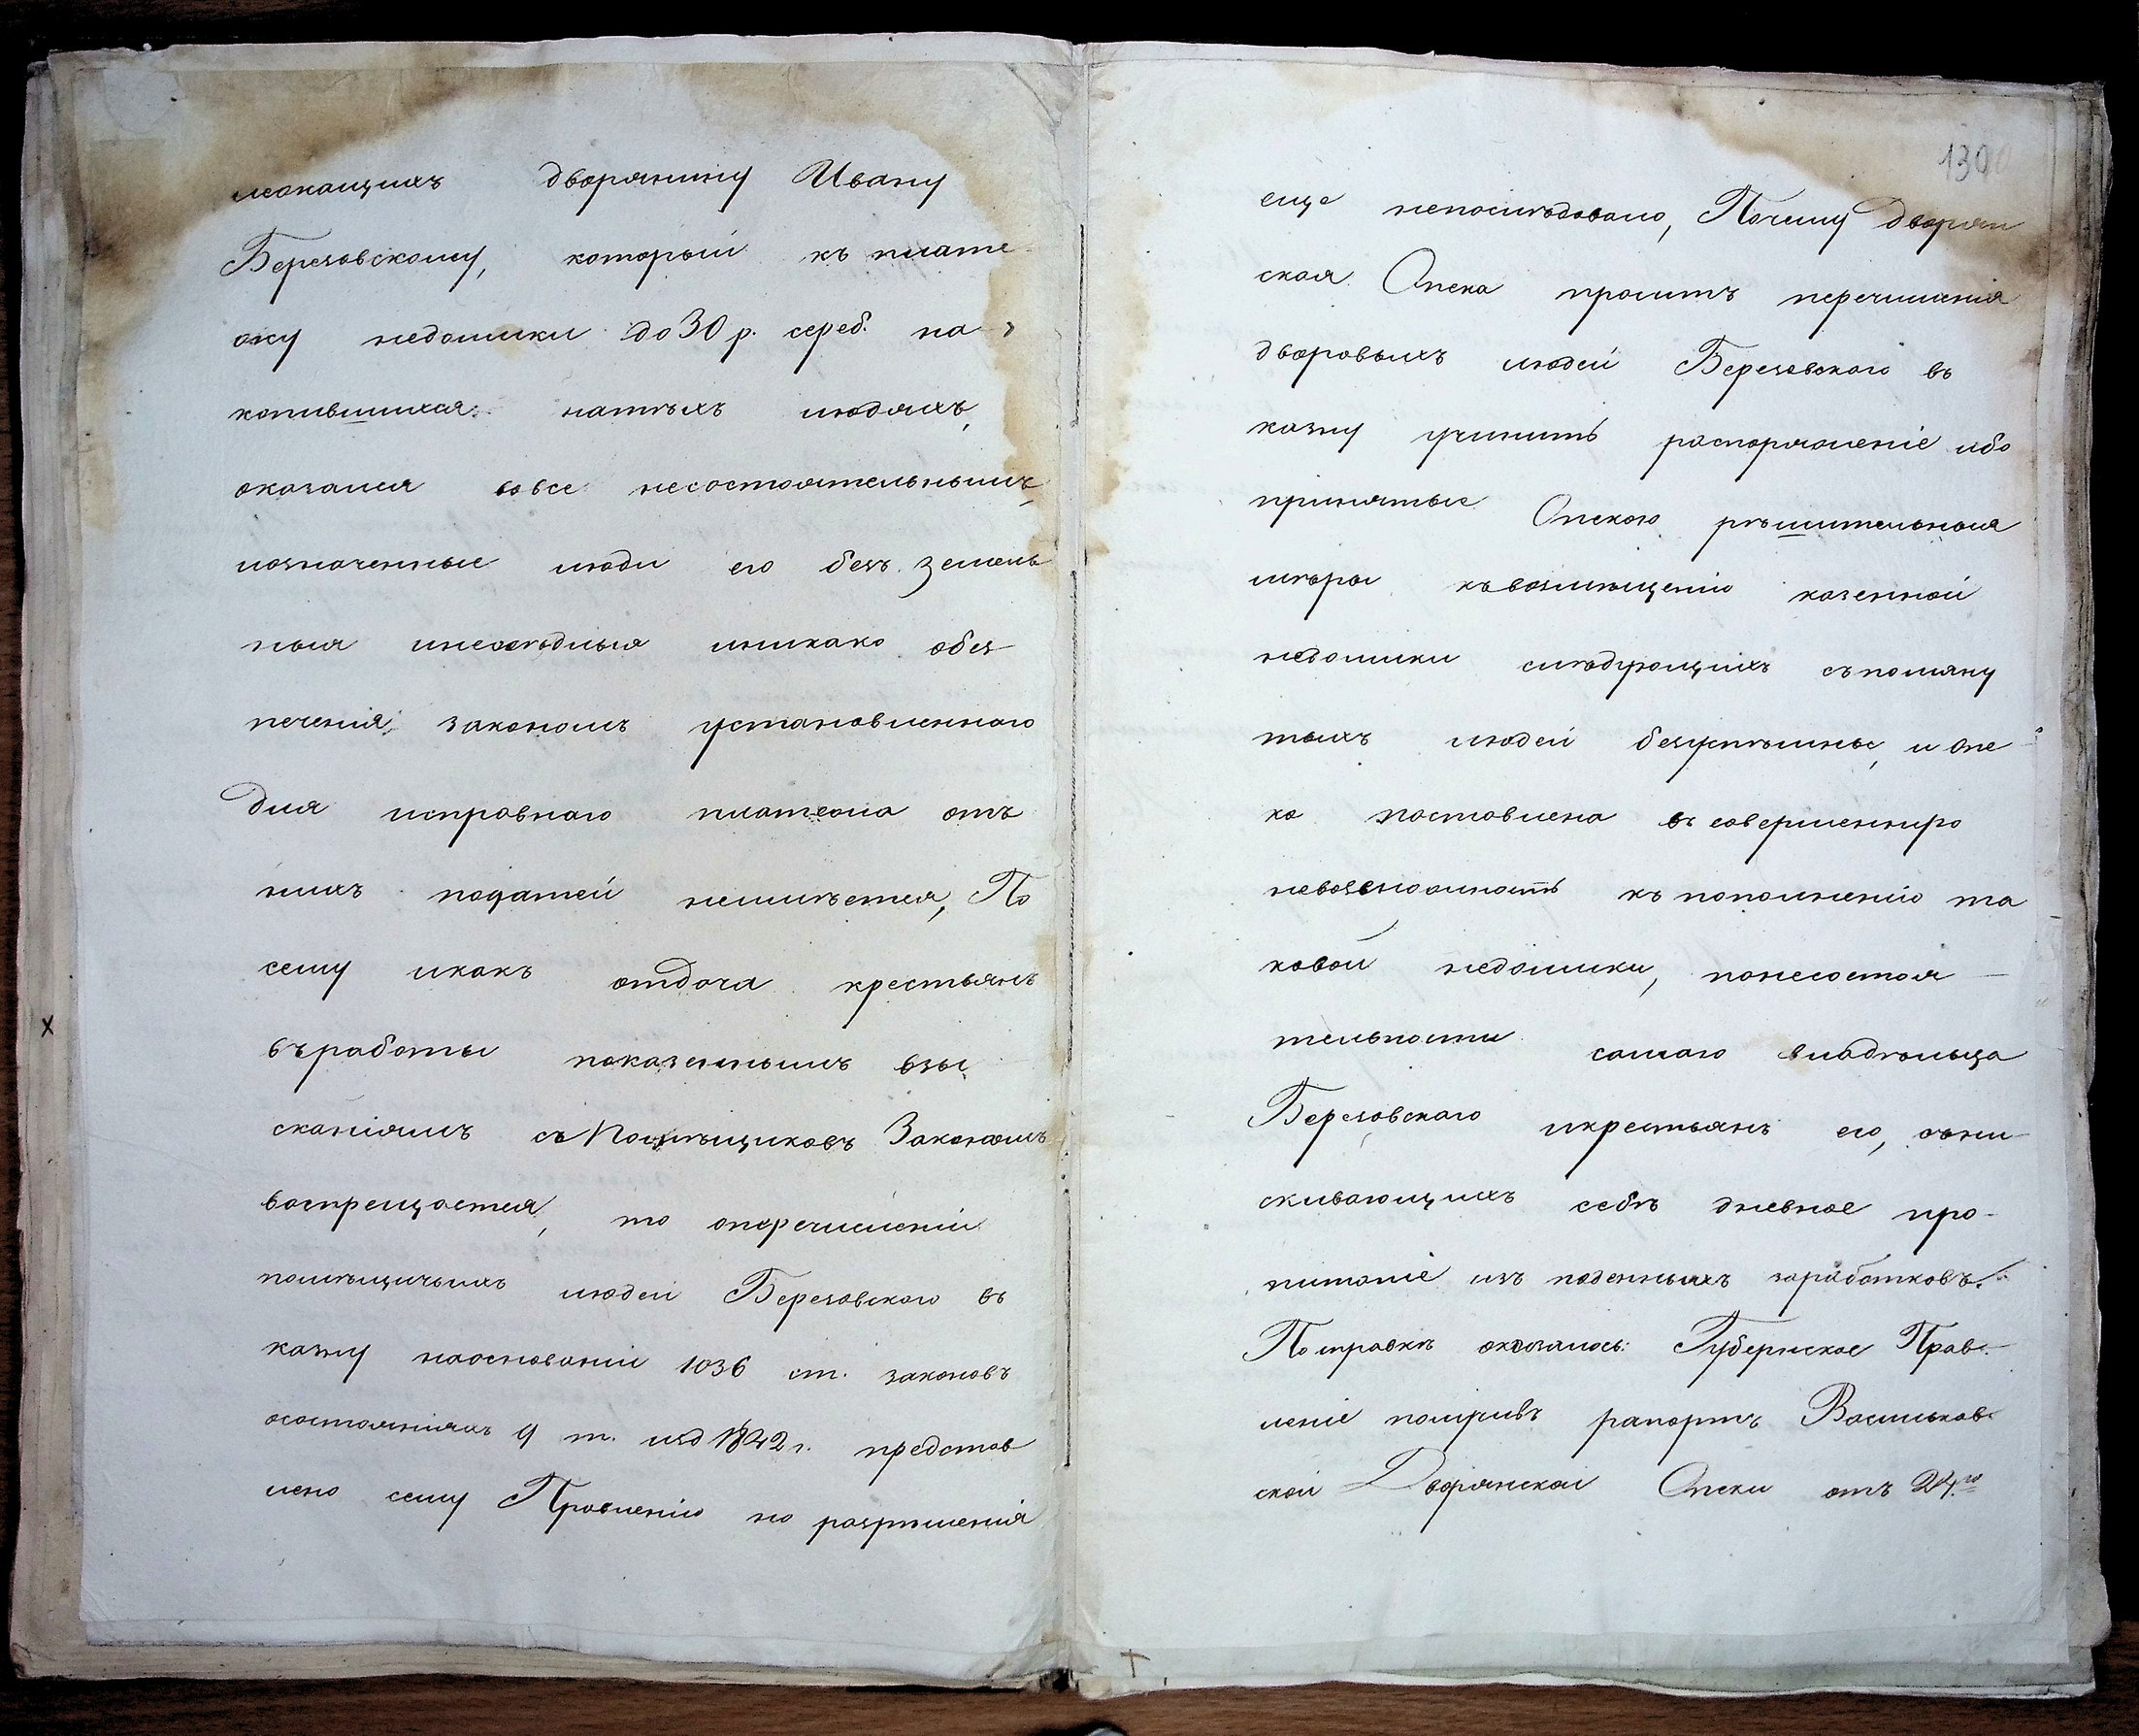 лежащихъ дворянину Ивану
Березовскому, который къ плате
жу недоимки до 30 р. сереб. на
копившихся натѣхъ людяхъ,
оказался вовсе несостоятельнымъ,
назначенные люди его безъ земель
ныя и никако обез
печенія, закономъ установленнаго
для исправнаго платежа отъ
нихъ податей неимѣется, По
сему икакъ отдача крестьянъ
въработы показеннымъ взы
сканіямъ съ Помѣщиковъ Закономъ
воспрещается, то оперечисленіи
помѣщичьихъ людей Березовского въ
казну наоснованіи 1036 ст. законовъ
осостояніяхъ 9 т. изд 1842 г. представ
лено сему Правленію но разрѣшенія
1390
еще непослѣдовало, Почему Дворян
ская Опека проситъ перечисленія
дворовыхъ людей Березовского въ
казну учинить распоряженіе ибо
принятые Опекою рѣшительныя
мѣры къвозмѣщенію казенной
недоимки слѣдующихъ съпомяну
тыхъ людей безуспѣшны, и Опе
ка поставлена въ совершенную
невозможность къ пополненію та
ковой недоимки, понесостоя
тельности самаго владѣльца
Березовского икрестьянъ его, сни
скивающихъ себѣ дневное про-
питаніе изъ поденныхъ заработковъ.
По справкѣ оказалось: Губернское Прав-
леніе получивъ рапортъ Васильков-
ской Дворянской Опеки отъ 24.го